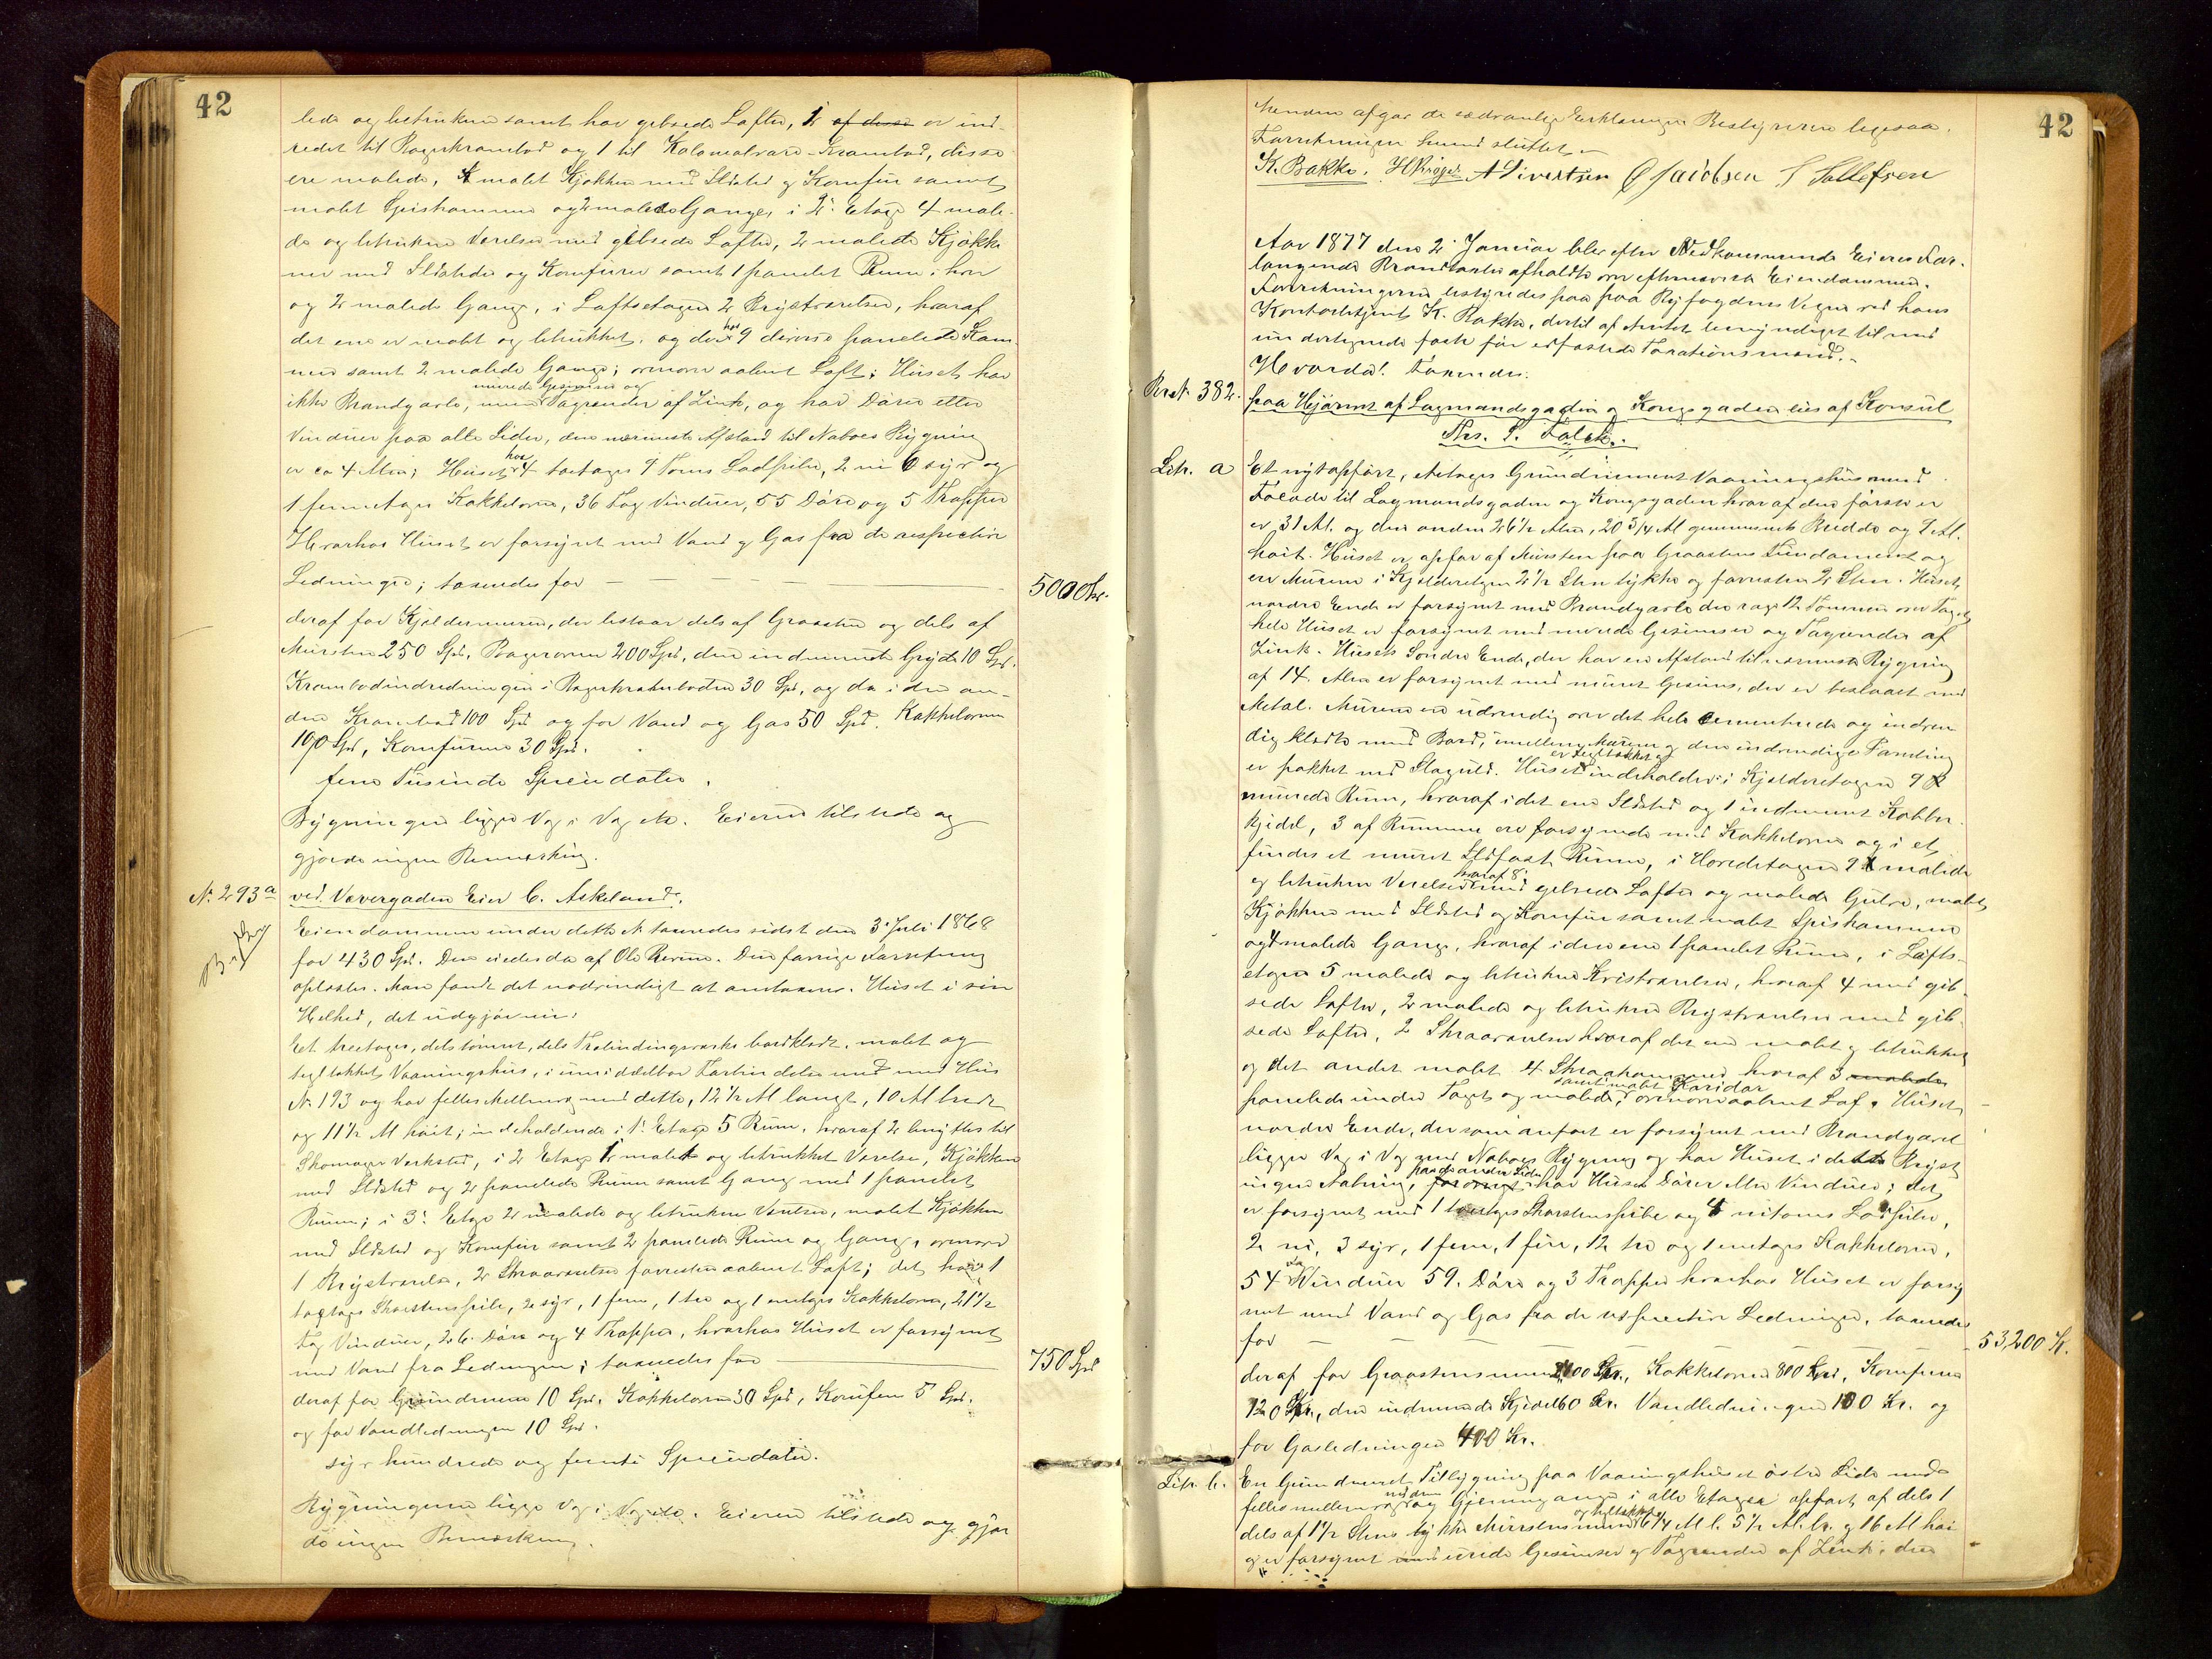 42
lede og betrukne samt har gibsede Lofter, 1 af disse er ind-
redet til Bagerkrambod og 1 til Kolonialvare-Krambod, disse
ere malede, 1 malet Kjøkken med Ildsted og Komfur samt
malet Spiskammer og 2 malede Gange, i 2. Etage 4 male-
de og betrukne Værelser med gibsede Lofter, 2 malede Kjøkke
ner med Ildsteder og Komfurer samt 1 panelet Rum i hver
og 2 malede Gange, i Loftsetagen 2 Kvistværelser, hvoraf
det ene er malet og betrukket, og der hos 9 diverse panelede Kam
mer samt 2 malede Gange; ovenover aabent Loft; Huset har
ikke Brandgavle, murede Gesimser og Tagrender af Zink, og har Døre eller
Vinduer paa alle Sider, den nærmeste Afstand til Naboes Bygning
er ca 4 Alen; Huset har 4 toetages 9 Toms Lodpiber, 2 ni 6 syv og
1 femetages Kakkelovne, 36 Fag Vinduer, 55 Døre og 5 Trapper
Hvorhos Huset er forsynet med Vand og Gas fra de respective
Ledninger; taxeredes for
5000 Spd.
deraf for Kjeldermuren, der bestaar dels af Graasten og dels af
Mursten 250 Spd, Bagerovnen 200 Spd, den indmurede Gryde 10 Spd.
Krambodindredningen i Bagerkramboden 30 Spd, og da i den an-
den Krambod 100 Spd og for Vand og Gas 50 Spd. Kakkelovne
190 Spd, Komfurene 30 Spd.
fem Tusinde Speciedaler.
Bygningen ligger Væg i Væg etc. Eieren tilstede og
gjorde ingen Bemærkning.
N. 293a ved Vævergaden Eier C. Askeland.
Eiendommen under dette N taxeredes sidst den 3. Juli 1868
for 430 Spd. Den eiedes da af Ole. Den forrige Forretning
oplæstes. Man fandt det nødvendigt at omtaxere Huset i sin
Helhed, det udgjør nu:
Et treetages, dels tømret, dels Trebindingsværks bordklædt, malet og
tegltækket Vaaningshus, i umiddelbar Forbindelse med Hus
N. 193 og har fælles Mellemvæg med dette, 12 1/2 Al langt, 10 Al bredt
og 11 1/2 Al høit; indeholdende i 1. Etage 5 Rum, hvoraf 2 benyttes til
Skomager Verksted, i 2 Etage 1 malet og betrukket Værelse, Kjøkken
med Ildsted og 2 panelede Rum samt Gang med 1 panelet
Rum; i 3. Etage 2 malede og betrukne Værelser, malet Kjøkken
med Ildsted og Komfur samt 2 panelede Rum og Gang, ovenover
1 Kvistværelse, 2 Skraaværelser forresten aabent Loft; det har 1
toetages Skorstenspibe, 2 syv, 1 fem, 1 tre og 1 enetages Kakkelovne, 21 1/2
Fag Vinduer, 26 Døre og 4 Trapper, hvorhos Huset er forsynet
med Vand fra Ledningen; taxeredes for
750 Spd
deraf for Grundmuren 10 Spd, Kakkelovne 30 Spd, Komfuren 5 Spd.
og for Vandledningen 10 Spd.
syv hundrede og femti Speciedaler.
Bygningerne ligge Væg i Væg etc. Eieren tilstede og gjor
de ingen Bemærkning.
42
Mændene afgav de sædvanlige Erklæringer Bestyreren ligesaa.
Forretningen hermed sluttet
K. Bakke. A Sivertsen Jacobsen S Tollefsen
Aar 1877 den 2. Januar blev efter Vedkommende Eieres For-
langende Brandtaxter afholdte over efternævnte Eiendomme.
Forretningerne bestyredes paa Byfogdens Vegne ved hans
Kontorbetjent K. Bakke, dertil af Amtet bemyndiget til med
undertegnede faste før edfæstede Taxationsmænd.
Hvorda! Taxeredes:
Brat. 382. paa Hjørnet af Lagmandsgaden og Kongsgaden eies af Konsul
Ths. S. Falck.
Litr. a Et nyt opført, etages Grundmuret Vaaningshus med
Facade til Lagmandsgaden og Kongsgaden hvoraf den første er
er 31 Al. og den anden 26 1/2 Alen, 20 3/4 Al gjennemsnits Bredde og 7 Al.
høit. Huset er opført af Mursten paa Graastens Fundament og
ere Murene i Kjelderetagen 2 1/2 Sten tykke og forresten 2 Sten. Husets
nordre Ende er forsynet med Brandgavle der rage 12 Tommer over Taget
hele Huset er forsynet med murede Gesimser og Tagrender af
Zink. Husets Søndre Ende, der har en Afstand til nærmeste Bygning
af 14 Alen er forsynet med muret Gesims, der er beslaaet med
Metal. Murene ere udvendig over det hele cementerede og indven
dig klædte med Bord, imellem Murene og den indvendige Panling
er pakket med Slaguld. Huset er tegltækket og indeholder i Kjelderetagen 9
murede Rum, hvoraf i det ene Ildsted og 1 indmuret Kobber
kjedel, 3 af Rummene ere forsynede med Kakkelovne og i et
findes et muret Ildfast Rum, i Hovedetagen 9 malede
og betrukne Værelser hvoraf 8 med gibsede Lofter og malede Gulve, malet
Kjøkken med Ildsted og Komfur samt malet Spiskammer
og 4 malede Gange, hvoraf i den ene 1 panelet Rum, i Lofts-
etagen 5 malede og betrukne Kvistværelser, hvoraf 4 med gib-
sede Lofter, 2 malede og betrukne Kvistværelser med gib-
sede Lofter, 2 Skraaværelser hvoraf det ene malet og betrukket
og det andet malet 4 Skraakammer hvoraf 3 malede
panelede under Taget og malede, samt malet Koridor ovenover aabent Loft. Husets
nordre Ende, der som anført er forsynet med Brandgavl
ligger Væg i Væg med Naboes Bygning og har Huset i dette Kvist
ingen Aabning, paa de andre Sider har Huset Dører eller Vinduer; det
er forsynet med 1 toetages Skorstenspibe og 4 nitoms Lodpiber,
2 ni, 3 syv, 1 fem, 1 fire, 12 tre og 1 enetages Kakkelovne,
54 Fag Vinduer 59 Døre og 3 Trapper hvorhos Huset er forsy
net med Vand og Gas fra de respective Ledninger, taxeredes
for
53,200 Kr.
deraf for Graastensmuren 00 Kr., Kakkelovne 800 Kr, Komfuren
120 Kr., den indmurede Kjedel 60 Kr. Vandledningen 100 Kr. og
for Gasledningen 400 Kr.
Litr. b. En Grundmuret Tilbygning paa Vaaningshusets østre Side med
fælles mellemvæg og Gjennemgange i alle Etager opført af dels 1
dels af 1 1/2 Stens tykke Murstensmure og tegltækket 6 1/4 Al l. 5 1/2 Al. br. og 16 Al høi
og er forsynet med murede Gesimser og Tagrender af Zink, den